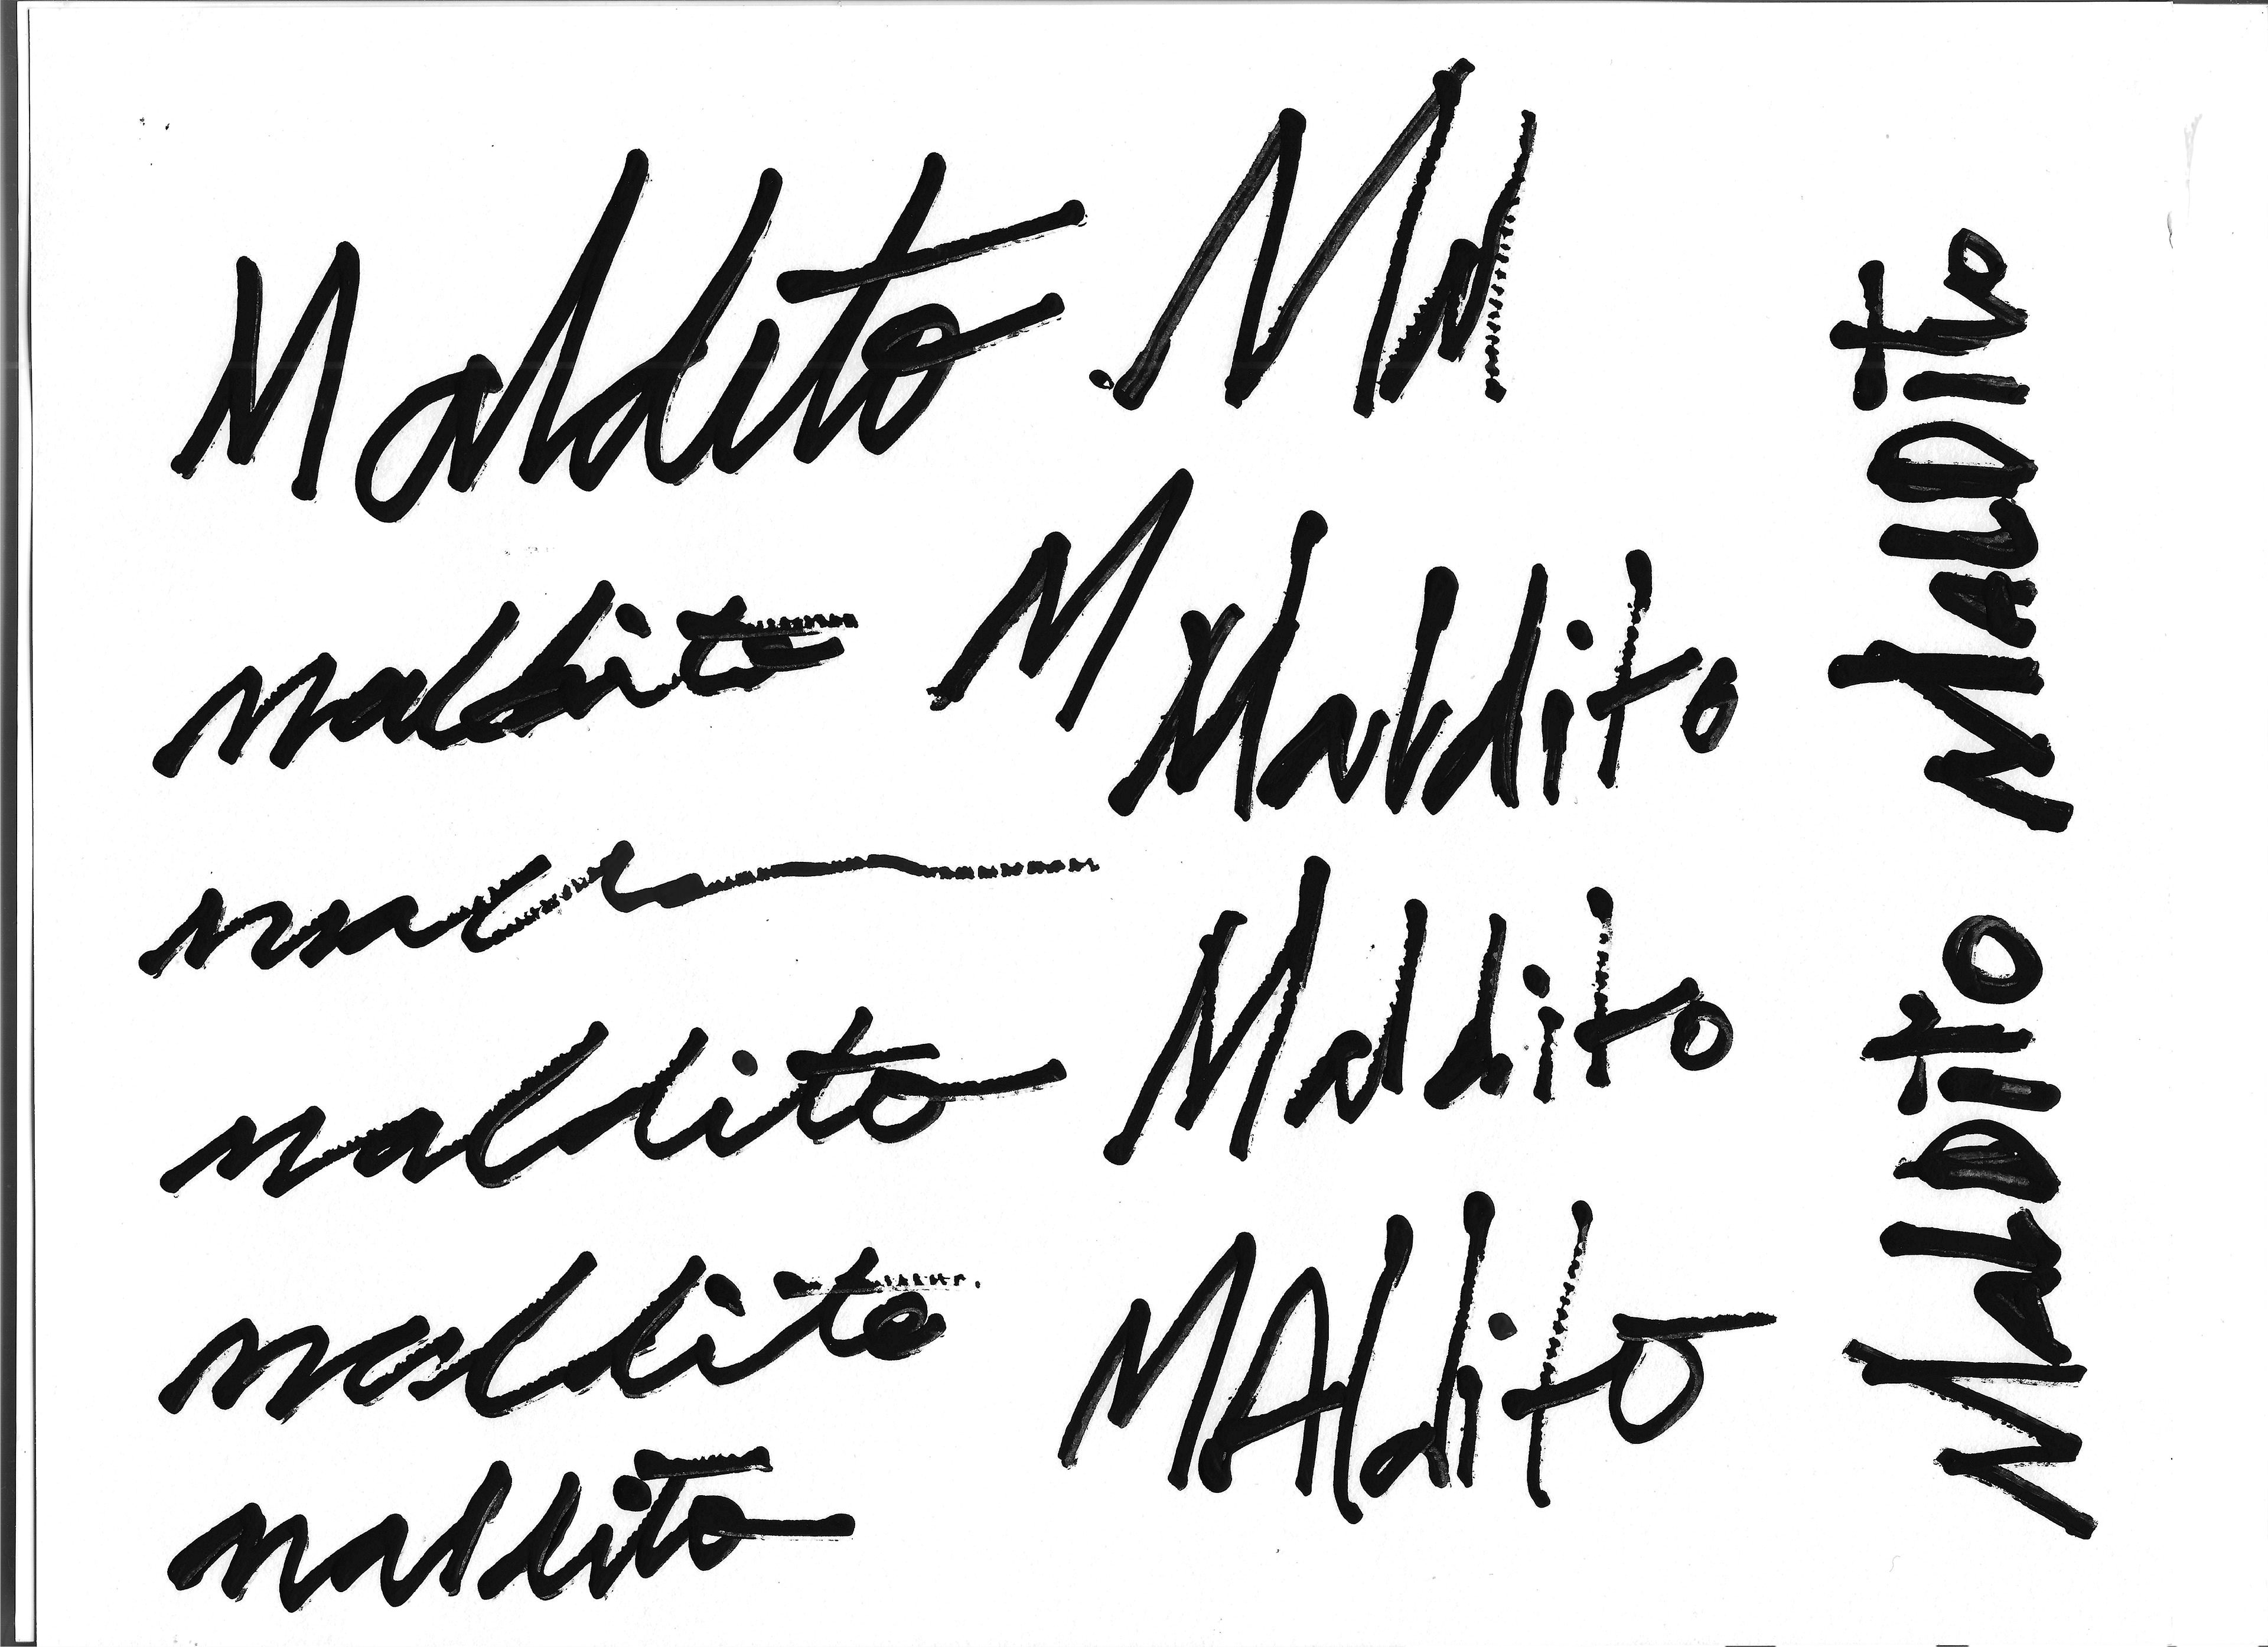 Maldito
maldito
maldito
maldito
maldito
M
Maldito
Maldito
MAldito
MaLDITO
MaLDITO